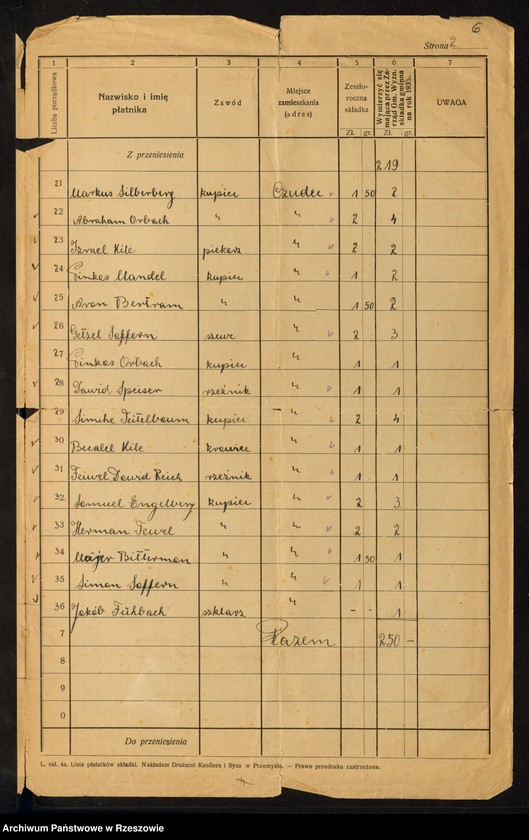 6
Strona 2.
1 2 3 4 5 6 7
Liczba porządkowa
Nazwisko i imię płatnika
Zawód
Miejsce zamieszkania (adres)
Zeszłoroczna składka
Zł. gr.
Wymierzyć się mająca przez Zarząd Gm. Wyzn. składka gminna na rok 1935.
Zł. gr.
UWAGA
Z przeniesienia 219
21 Markus Silberberg kupiec Czudec 1 50 2
22 Abraham Orbach " " 2 4
23 Izrael Kile piekarz " 2 2
24 Pinkas Mandel kupiec " 1 2
25 Aron Bertram " " 1 50 2
26 Getzel Saffern szewc " 2 3
27 Pinkas Orbach kupiec " 1 1
28 Dawid Speiser rzeźnik " 1 1
29 Simche Teitelbaum kupiec " 2 4
30 Kile krawiec " 1 1
31 Feiwel Dawid Reich rzeźnik " 1 1
32 Samuel Engelberg kupiec " 2 3
33 Herman " 2 2
34 Majer Bitterman " " 1 50 1
35 Simon Saffern " " 1 1
36 Jakób szklarz " - - 1
7 Razem 250 —
8
9
0
Do przeniesienia
L. skł. 4a. Lista płatników składki. Nakładem Drukarni Knollera i Syna w Przemyślu. – Prawo przedruku zastrzeżone.
Archiwum Państwowe w Rzeszowie